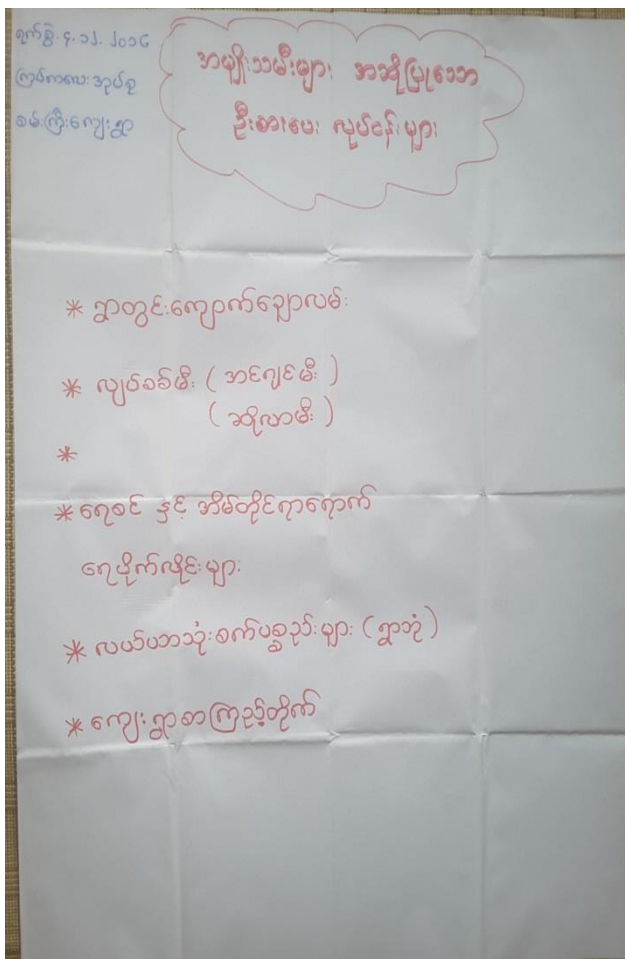 ရက်စွဲ. ၄. ၁၂. ၂၀၁၄
ကြပ်ကလေးအုပ်စု
စမ်းကြီးကျေးရွာ
အမျိုးသမီးများ အဆိုပြုသော
ဦးစားပေး လုပ်ငန်းများ
* ရွာတွင်းကျောက်ချောလမ်း
* လျှပ်စစ်မီး ( အင်ဂျင်မီး )
( ဆိုလာမီး )
*
* ရေစင် နှင့် အိမ်တိုင်ရာရောက်
ရေပိုက်လိုင်းများ
* လယ်ယာသုံးစက်ပစ္စည်းများ ( ရွာဘုံ )
* ကျေးရွာစာကြည့်တိုက်